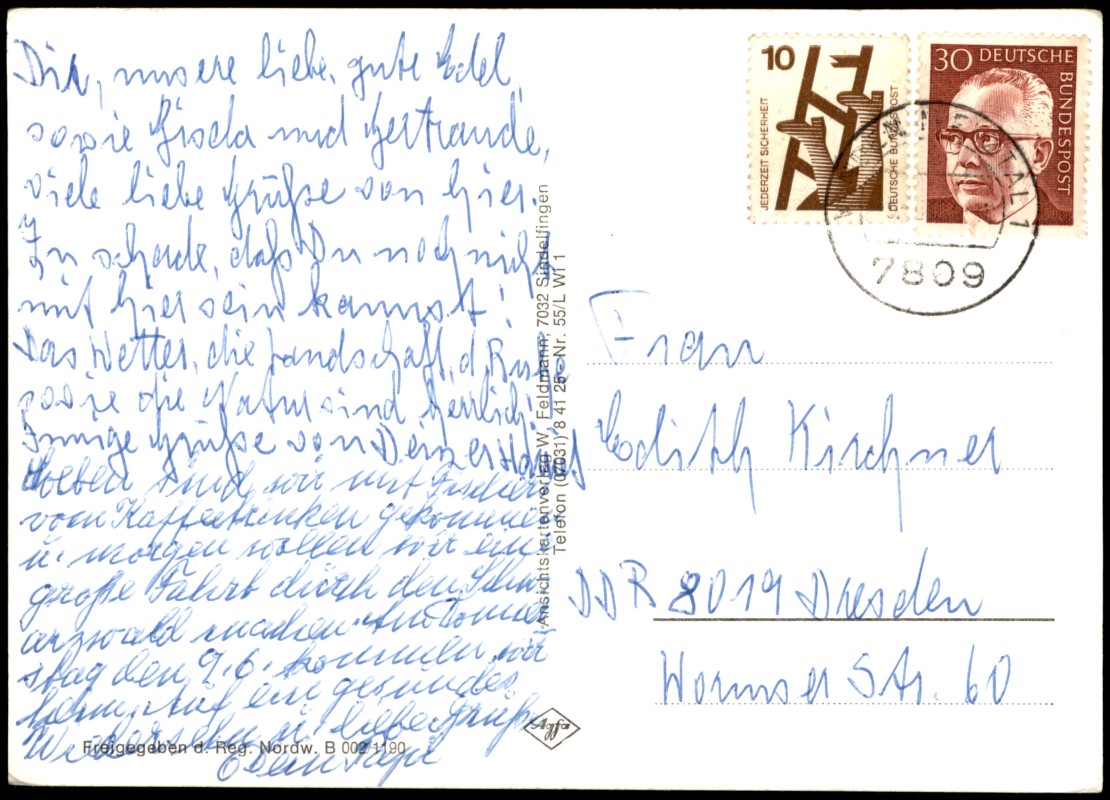 Dir, unsere liebe, gute Edel,
sowie Gisela und Gertraude,
viele liebe Grüße von hier.
Zu schade, daß Du noch nicht
mit hier sein kannst!
Das Wetter, die Landschaft, d. 
sowie die Natur sind herrlich!
Innige Grüße von Deiner
Soeben sind wir mit
vom Kaffeetrinken gekommen
u. morgen wollen wir eine
große Fahrt durch den Schw
arzwald machen.
stag den 9.6. kommen wir
heim. Auf ein gesundes
Wiedersehn u. liebe Grüße
Dein
Freigegeben d. Reg. Nordw. B 002/1190
Ansichtskartenverlag W. Feldmann, 7032 Sindelfingen
Telefon (07031) 8 41 25 - Nr. 55/L Wi 1
Agfa
10
JEDERZEIT SICHERHEIT
DEUTSCHE BUNDESPOST
30 DEUTSCHE
BUNDESPOST
7809
Frau
Edith Kirchner
DDR 8019 Dresden
Wormser Str. 60